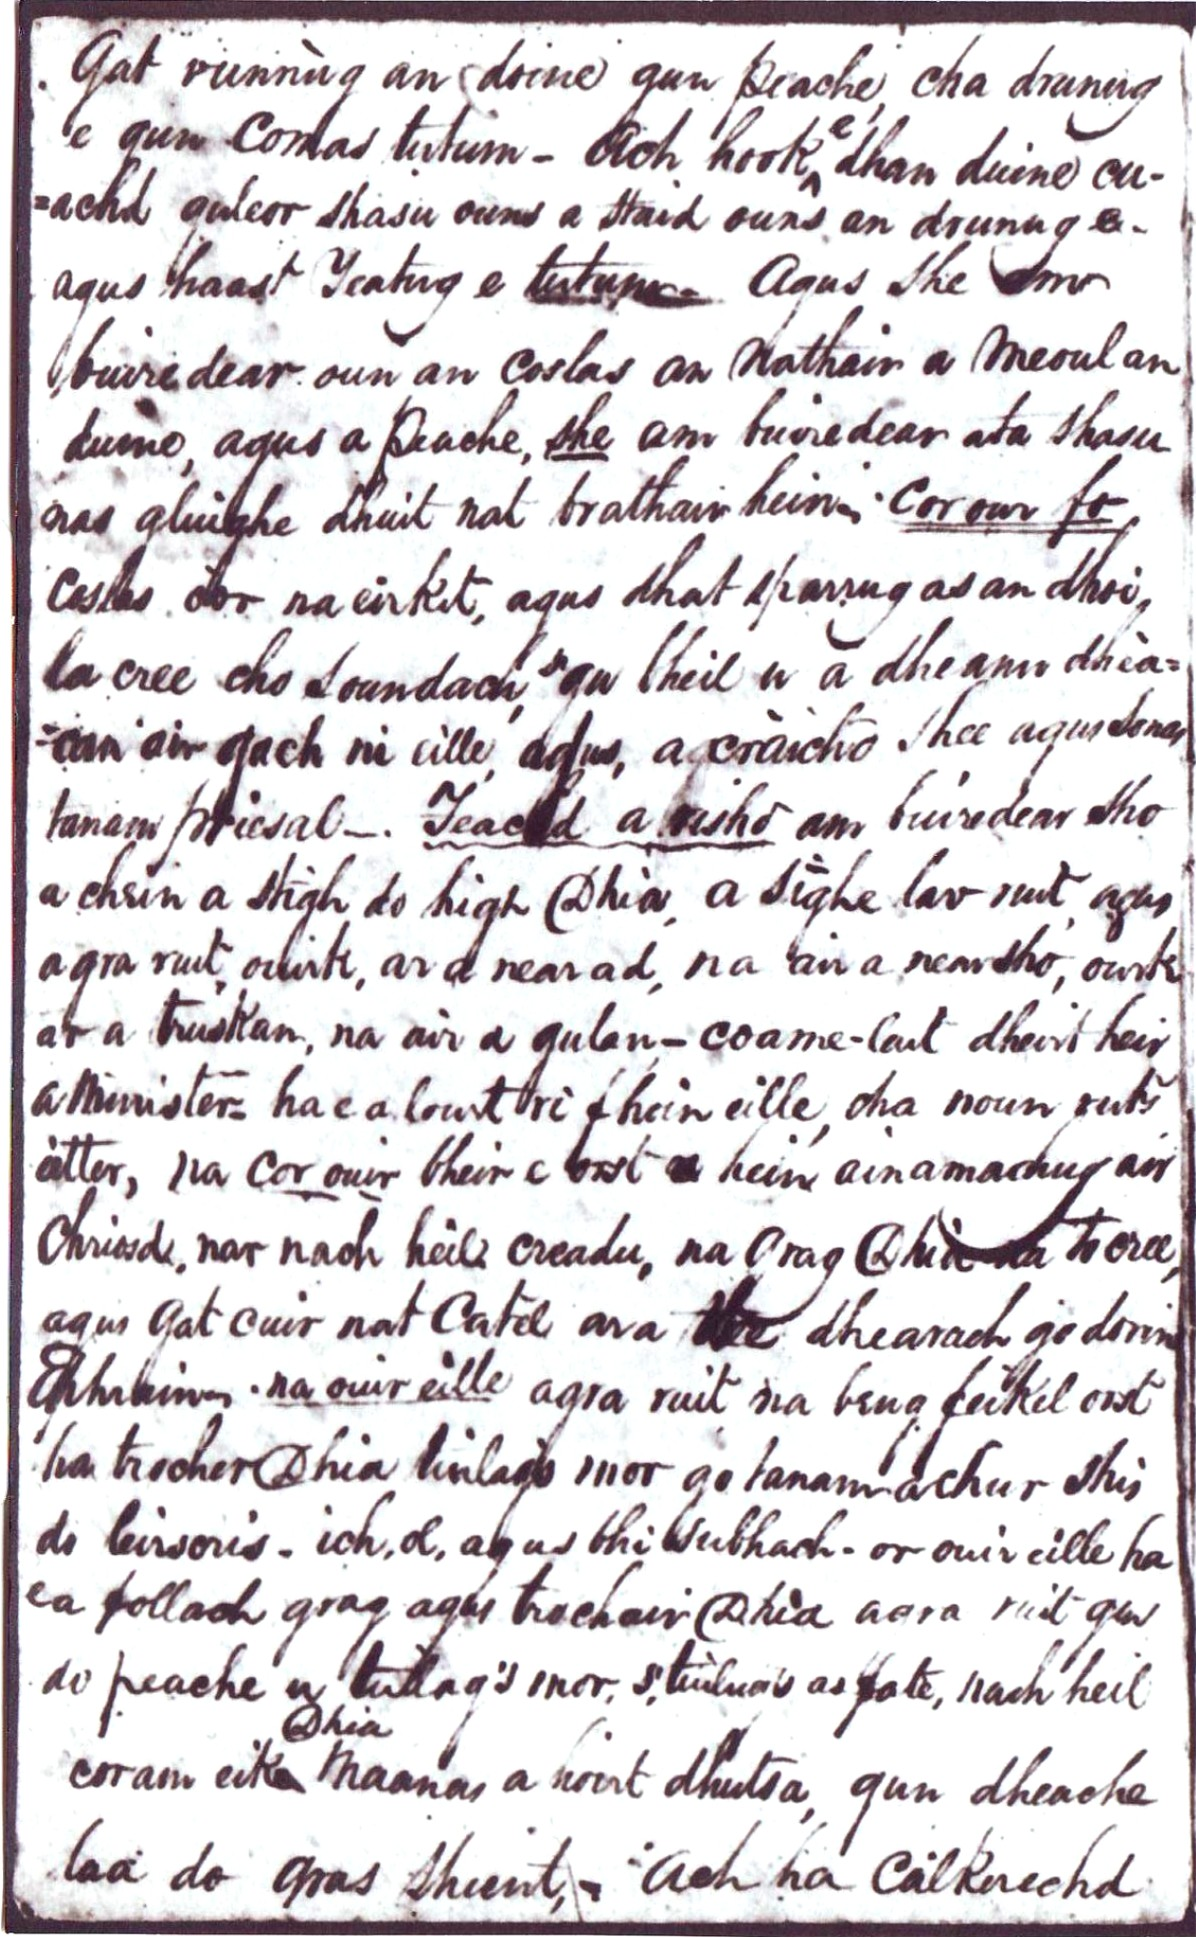 Gat runnùg an doine gun peache, cha drunug
e gun Comas tutum - Ach hook e dhan duine cu-
=achd guleor shasu ouns a staid ouns an drunug e -
agus haast Yeatug e tutum - Agus she mo
buiredear oun an Coslas an Nathair a meoul an
duine, agus a peache, she am buiredear ata shasu
nas gluighe dhuit nat brathair hein - Cor our fo
Coslas dor na cirkit, agus dhat sparrug as an dhoi,
la cree cho soundach, s' gu bheil u a dheanu dhia=
=can air gach ni eille, agus, a cràicho shee agus sonas
tanam priesal -. Teacad a risho am buiredear sho
a chein a stigh do high Dhia, a sìghe lav ruit, agus
agra ruit, ouirk, ar a near ad, na air a near sho, ourk
ar a truskan, na air a gulan - coame-leut dheirt heir
a Minister - ha e a lourt ri fhein eille, cha noun ruts
àtter, na cor ouir bheir e orst u hein ainamachug air
Chriosd, nar nach heil creadu, na Grag Dhia na to cree,
agus Gat cuir nat Catel ara dhearach go dorin
Ephraim - na ouir eille agra ruit na beug feikel orst
ha trocher Dhia tinlags mor go tanam achur shis
do leirsoris - ich, ol, agus bhi subhach - or ouir eille ha
e a follach grag agus trochair Dhia agra ruit gun
do peache u tullag's mor, s' tuilug's as fate, nach heil
coram eik Dhia Maanas a hoirt dhutsa, gun dheache
laa do gras shuent, - Ach ha Calkerechd